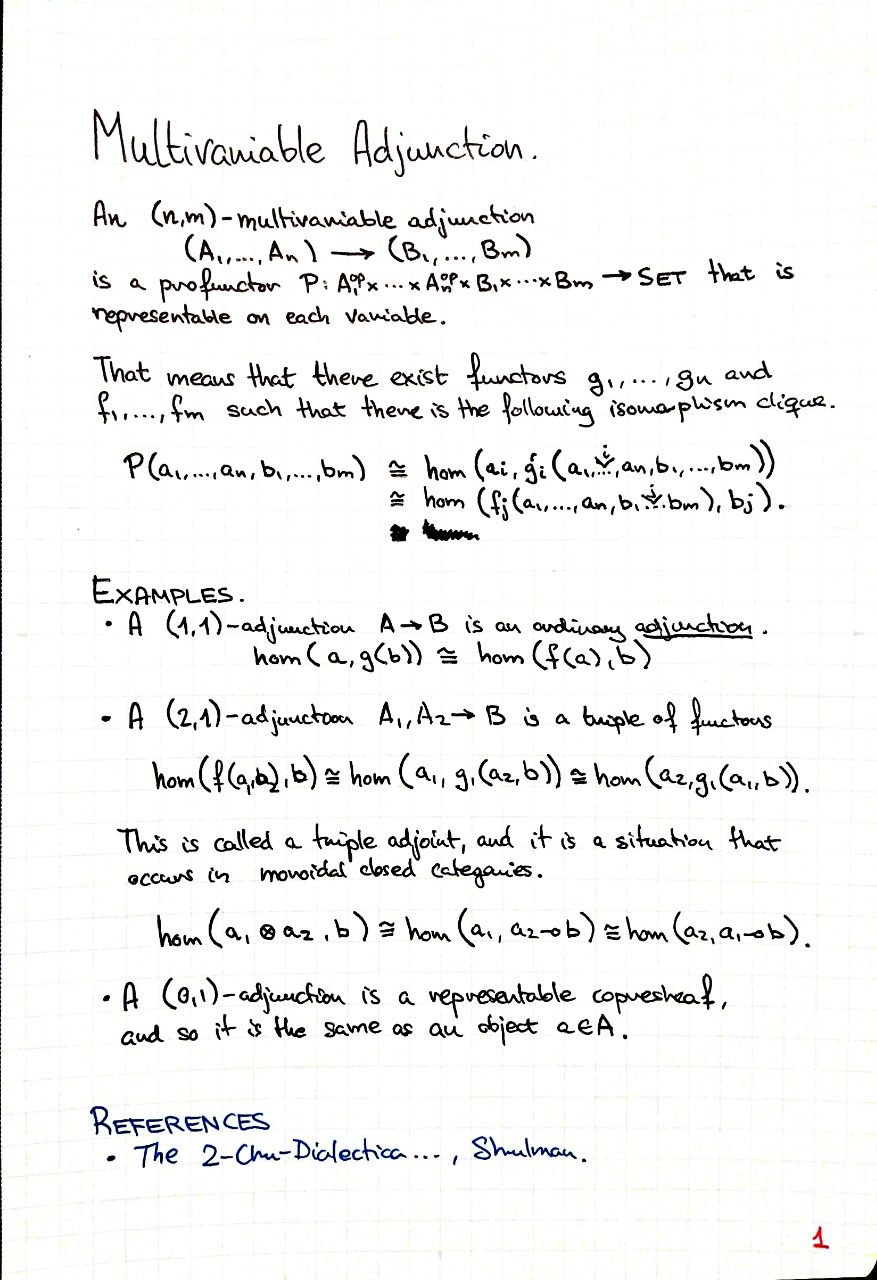 Multivariable Adjunction.
An (n,m)-multivariable adjunction
(A₁,..., Aₙ) → (B₁,..., Bₘ)
is a profunctor P: A₁ᵒᵖ × ... × Aₙᵒᵖ × B₁ × ... × Bₘ → SET that is
representable on each variable.
That means that there exist functors g₁,..., gₙ and
f₁,..., fₘ such that there is the following isomorphism clique.
P(a₁,..., aₙ, b₁,..., bₘ) ≅ hom (aᵢ, gᵢ(a₁,.ⁱ., aₙ, b₁,..., bₘ))
≅ hom (fⱼ(a₁,..., aₙ, b₁.ʲ.bₘ), bⱼ).
EXAMPLES.
• A (1,1)-adjunction A → B is an ordinary adjunction.
hom(a, g(b)) ≅ hom(f(a), b)
• A (2,1)-adjunctoon A₁, A₂ → B is a triple of functors
hom(f(a₁,a₂), b) ≅ hom (a₁, g₁(a₂,b)) ≅ hom(a₂, g₁(a₁,b)).
This is called a triple adjoint, and it is a situation that
occurs in monoidal closed categories.
hom (a₁ ⊗ a₂, b) ≅ hom (a₁, a₂⊸b) ≅ hom(a₂, a₁⊸b).
• A (0,1)-adjunction is a representable copresheaf,
and so it is the same as an object a∈A.
REFERENCES
• The 2-Chu-Dialectica ..., Shulman.
1